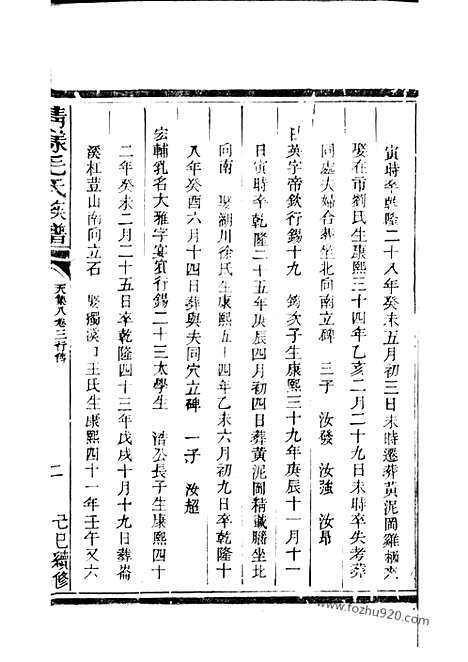 寅時卒乾隆二十八年癸未五月初三日未時遷葬黃泥岡雞棲灣
娶在市劉氏生康熙三十四年乙亥二月二十九日未時卒失考葬
同處夫婦合葬坐北向南立碑 三子 汝發 汝強 汝昂
曰英字帝欽行錫十九 鈞次子生康熙三十九年庚辰十一月十一
日寅時卒乾隆二十五年庚辰四月初四日葬黃泥岡精誠勝坐北
向南 娶湖川徐氏生康熙五十四年乙未六月初九日卒乾隆十
八年癸酉六月十四日葬與夫同穴立碑 一子 汝超
宏輔乳名大雅字宴賓行錫二十三太學生 浩公長子生康熙四十
二年癸未二月二十五日卒乾隆四十三年戊戌十月十九日葬崙
溪杠荳山南向立石 娶獨溪口王氏生康熙四十一年壬午又六
毛氏族譜
天集八卷三行傳
二
己巳續修
www.fozhu920.com